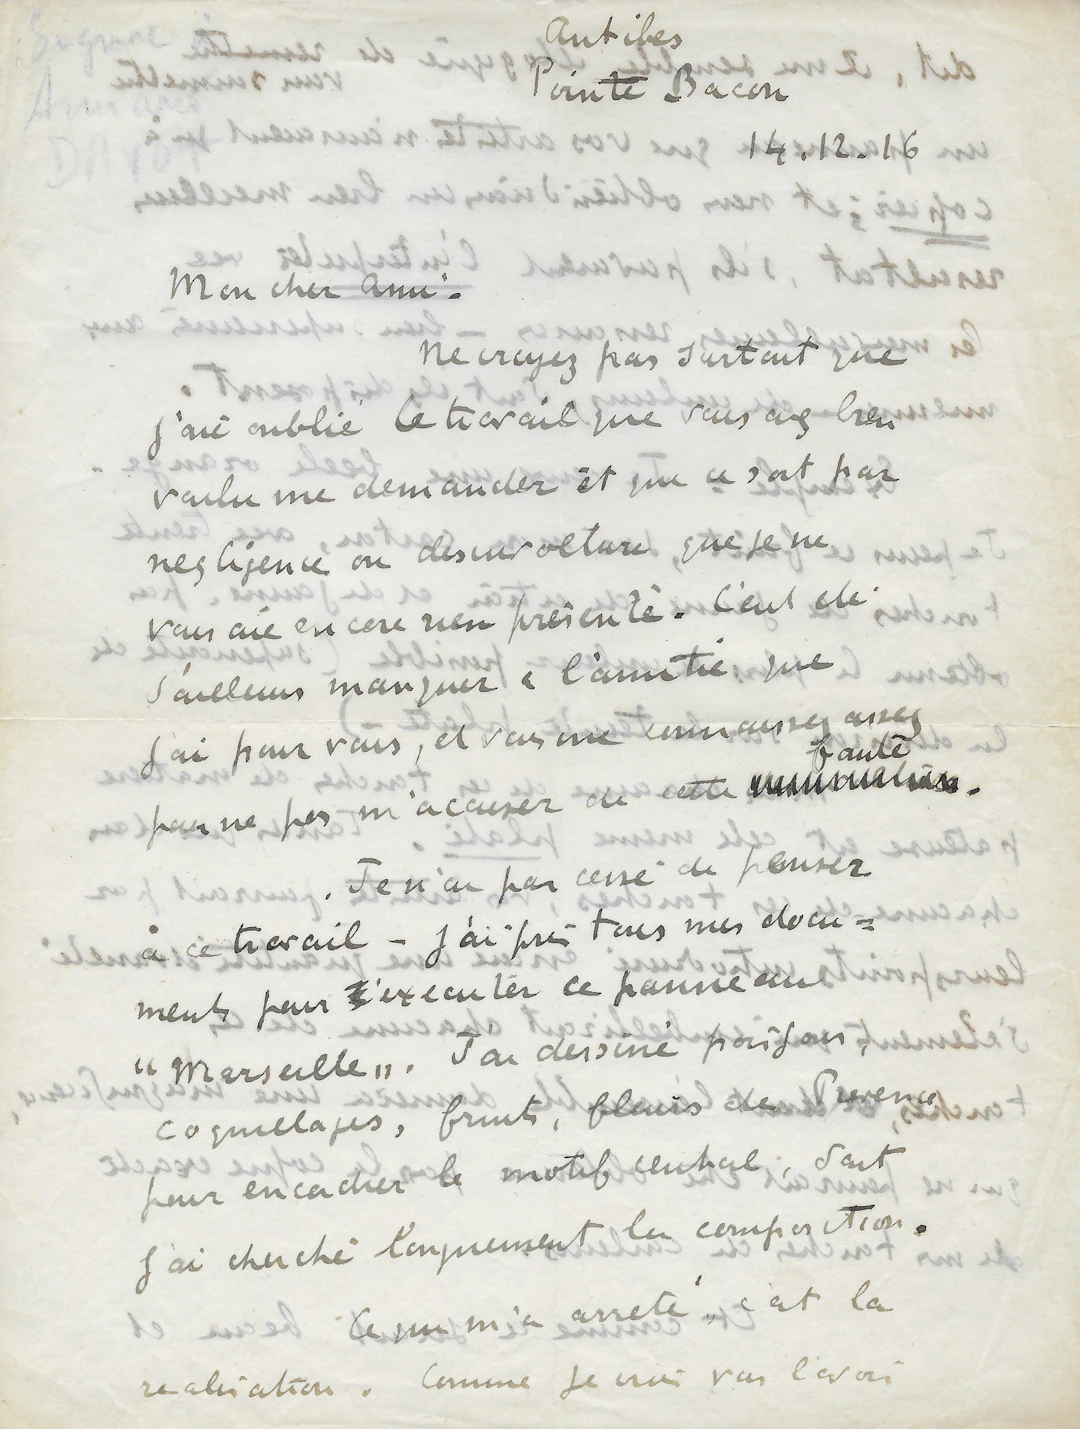 Antibes
Pointe Bacon
14.12.16
Mon cher ami.
Ne croyez pas surtout que
j'aie oublié le travail que vous avez bien
voulu me demander et que ce soit par
negligence ou desinvolture que je ne
vous aie encore rien présenté. C'eut été
d'ailleurs manquer à l'amitié que
j'ai pour vous, et vous me connaissez assez
pour ne pas m'accuser de cette faute.
Je n'ai pas cessé de penser
à ce travail - j'ai pris tous mes docu=
ments pour executer ce panneau
"Marseille". J'ai dessiné poissons,
coquillages, fruits, fleurs de Provence
pour encadrer le motif central, dont
j'ai cherché longuement la composition.
Ce qui m'a arreté, c'est la
realisation. Comme je crois vous l'avoir